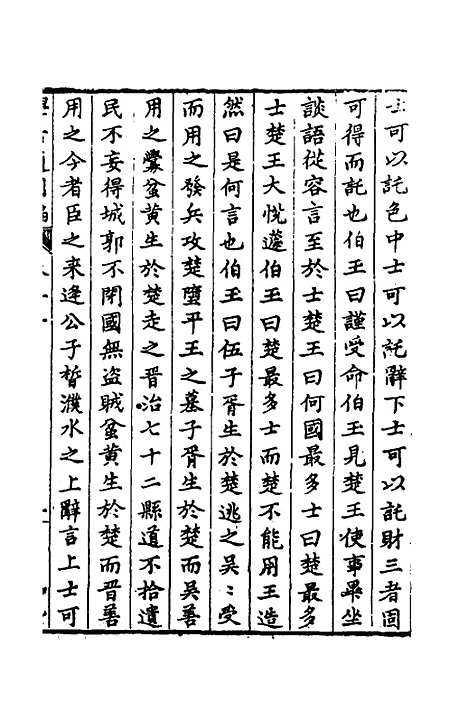 士可以託色中士可以託辭下士可以託財三者固
可得而託也伯玉曰謹受命伯玉見楚王使事畢坐
談語從容言至於士楚王曰何國最多士曰楚最多
士楚王大悅蘧伯玉曰楚最多士而楚不能用王造
然曰是何言也伯玉曰伍子胥生於楚逃之吳〻受
而用之發兵攻楚墮平王之墓子胥生於楚而吳善
用之釁蚠黄生於楚走之晋治七十二縣道不拾遺
民不妄得城郭不閉國無盜賊蚠黄生於楚而晋善
用之今者臣之来逢公子晳濮水之上辭言上士可